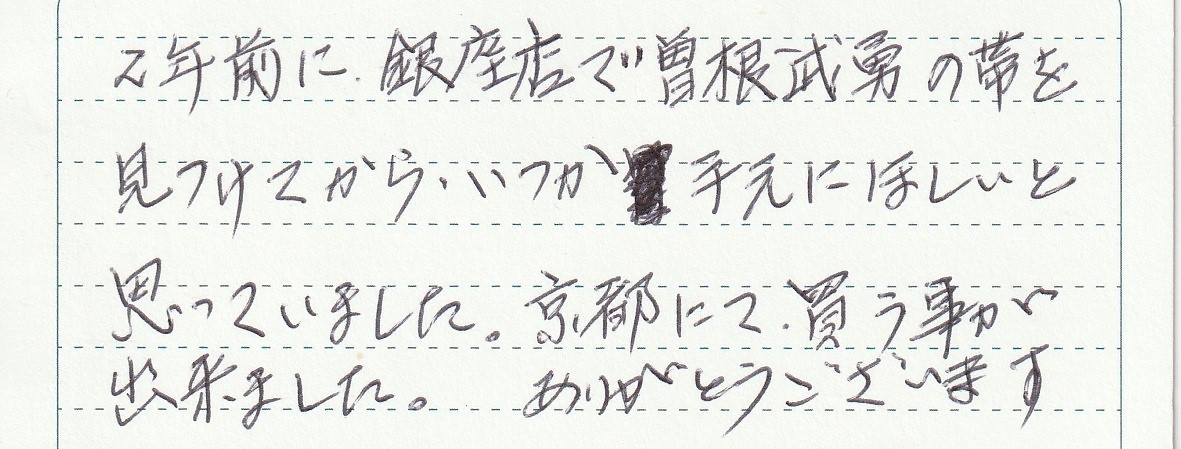 2年前に、銀座店で曽根武勇の帯を
見つけてから、いつか手元にほしいと
思っていました。京都にて、買う事が
出来ました。 ありがとうございます